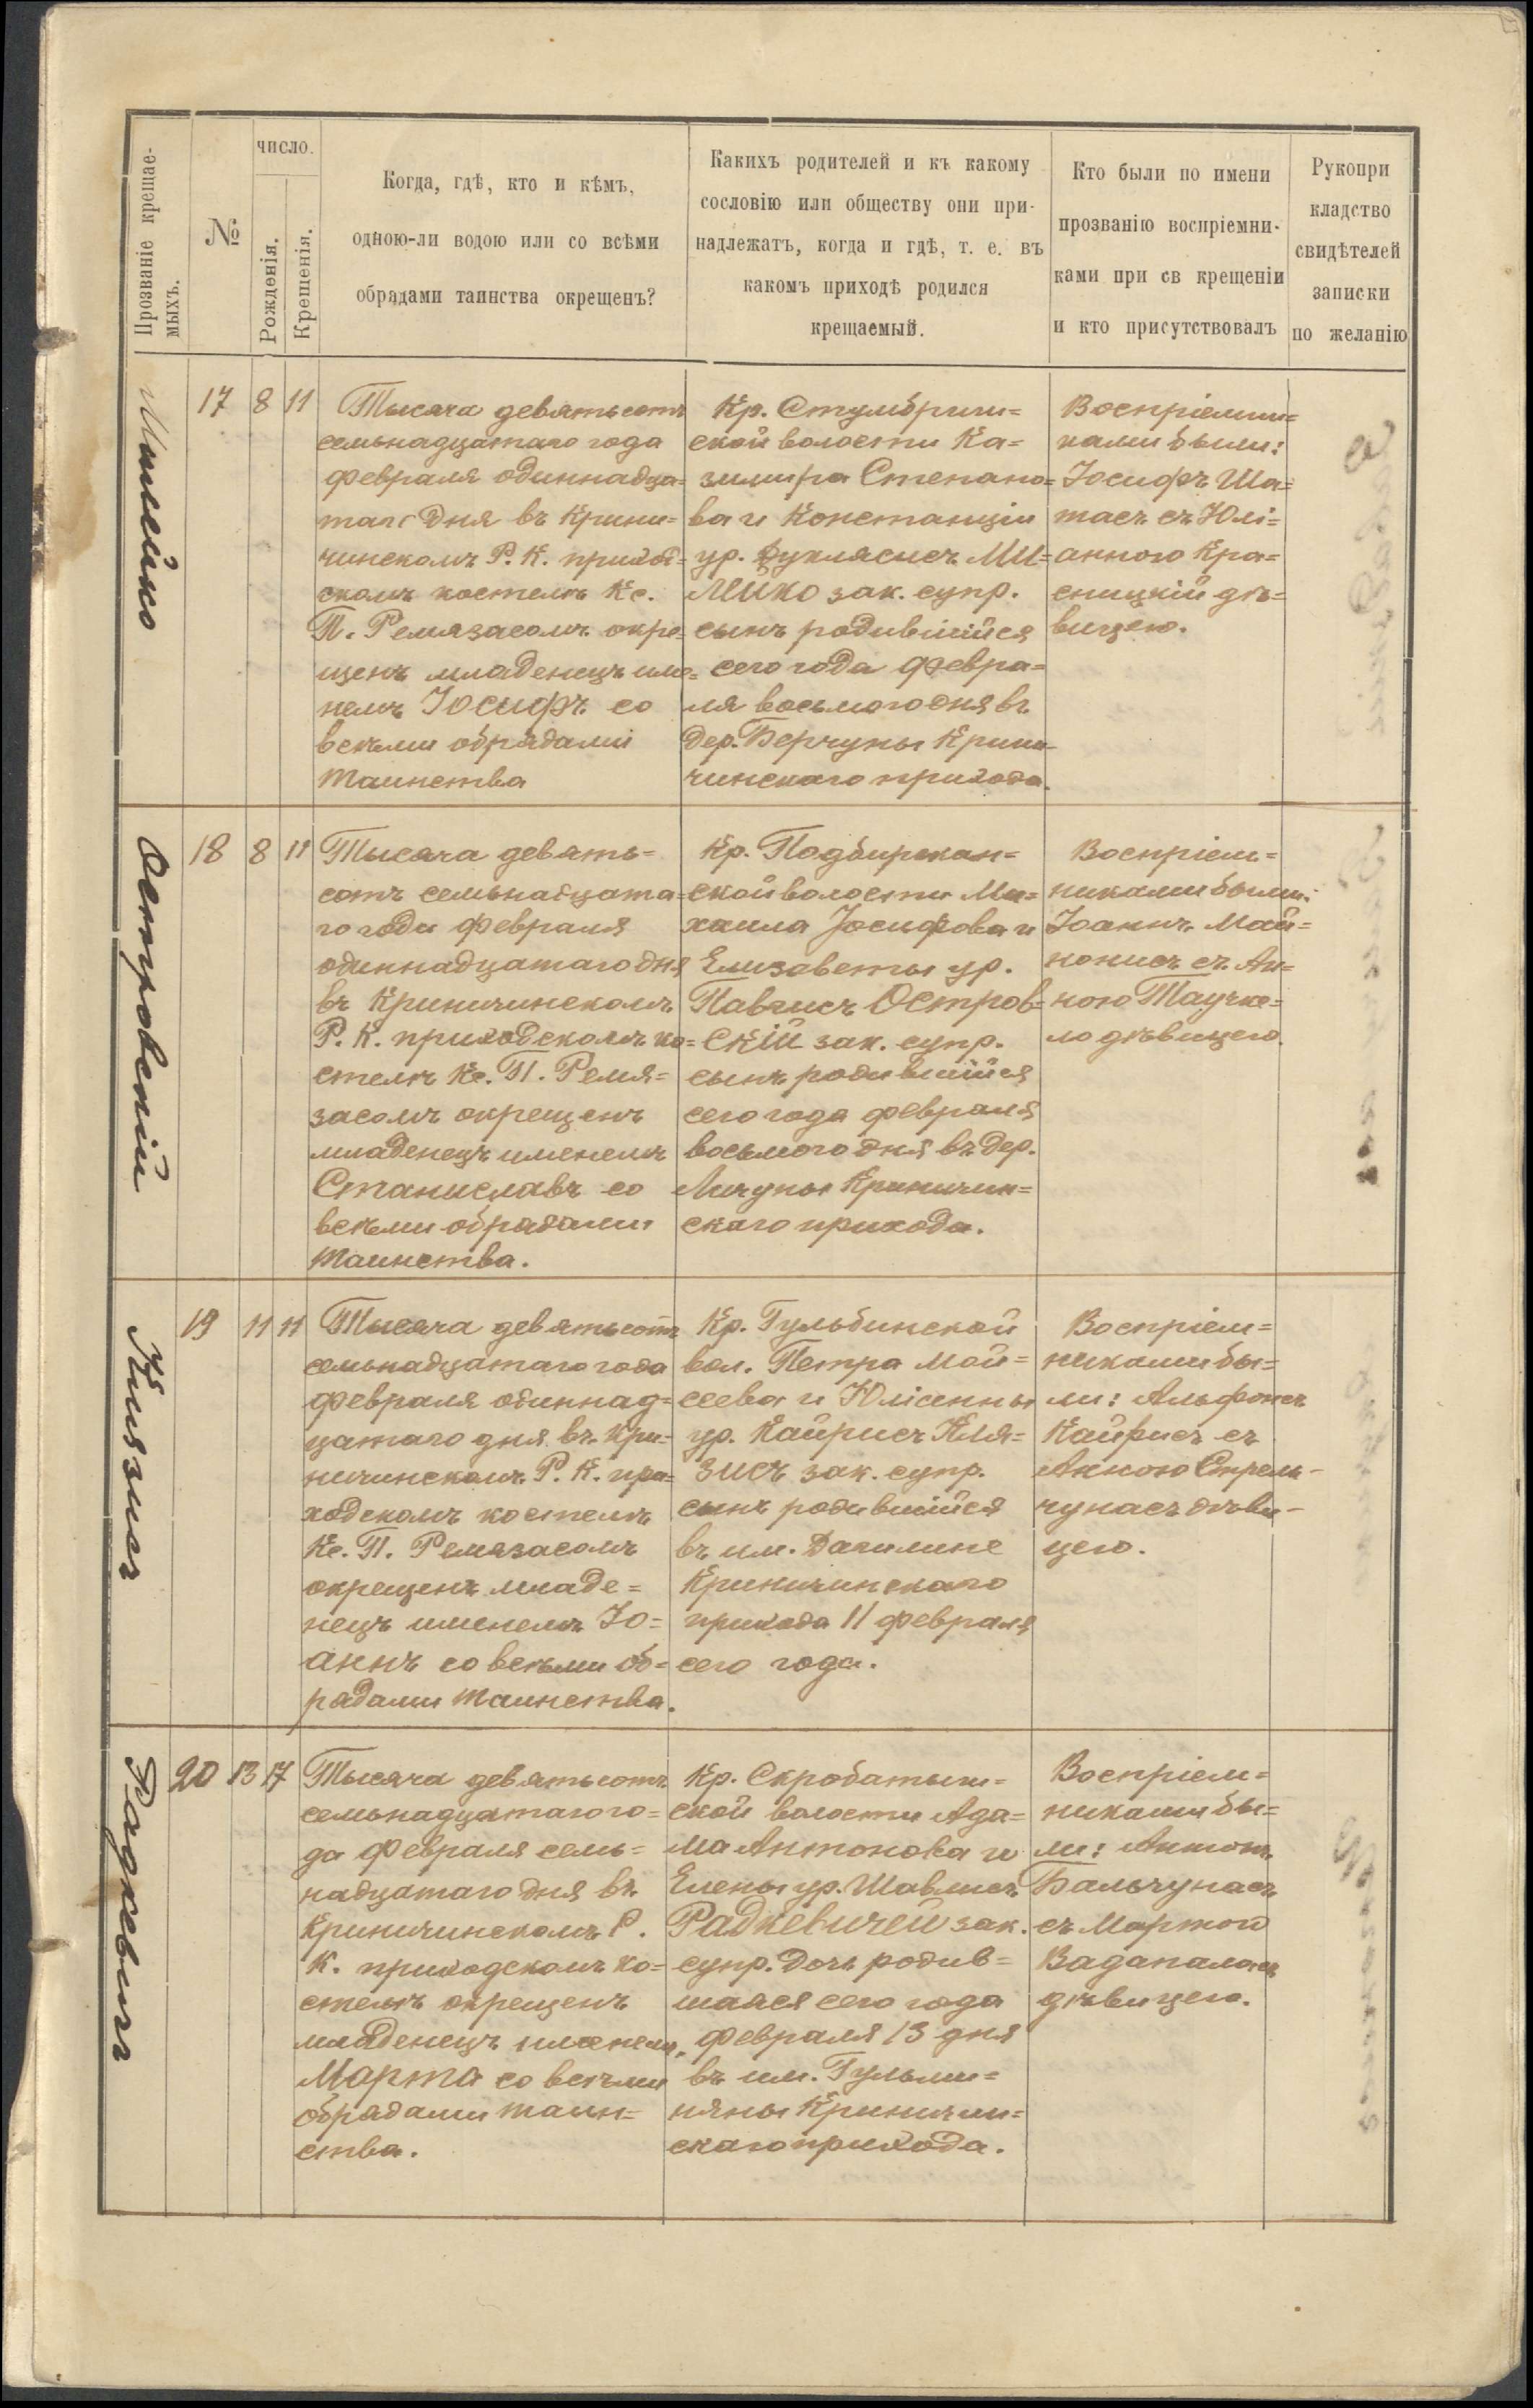 Прозваніе крещае-
мыхъ.
№
число.
Рожденія.
Крещенія.
Когда, гдѣ, кто и кѣмъ,
одною-ли водою или со всѣми
обрядами таинства окрещенъ?
Какихъ родителей и къ какому
сословію или обществу они при-
надлежатъ, когда и гдѣ, т. е. въ
какомъ приходѣ родился
крещаемый.
Кто были по имени
прозванію воспріемни-
ками при св крещеніи
и кто присутствовалъ
Рукопри
кладство
свидѣтелей
записки
по желанію
Мимейко
17
8
11
Тысяча девятьсотъ
семьнадцатаго года
февраля одиннадца=
таго дня въ Крини=
чинскомъ Р. К. приход=
скомъ костелѣ Кс.
П. Ремязасомъ окре=
щенъ младенецъ име=
немъ Іосифъ со
всѣми обрядами
таинства
Кр. Стумбриш=
ской волости Ка=
зимира Степано=
ва и Констанціи
ур. МИ=
МЕЙКО зак. супр.
сынъ родившійся
сего года февра=
ля восьмого дня въ
дер. Берчуны Крини-
чинскаго прихода.
Воспріемни=
ками были:
Іосифъ Ша=
тасъ съ Юлі=
анною Кра=
сницкій дѣ=
вицею.
Островскій
18
8
11
Тысяча девять=
сотъ семьнадцата=
го года февраля
одиннадцатаго дня
въ Криничинскомъ
Р. К. приходскомъ ко=
стелѣ Кс. П. Ремя=
засомъ окрещенъ
младенецъ именемъ
Станиславъ со
всѣми обрядами
таинства.
Кр. Подбирежан=
ской волости Ми=
хаила Іосифова и
Елизаветы ур.
Павгисъ Остров=
СКІЙ зак. супр.
сынъ родившійся
сего года февраля
восьмого дня въ дер.
Личуны Криничин=
скаго прихода.
Воспріем=
никами были:
Іоаннъ Май=
нонисъ съ Ан=
ною Таучке=
ло дѣвицею.
Клязисъ
19
11
11
Тысяча девятьсотъ
семьнадцатаго года
февраля одиннад=
цатаго дня въ Кри=
ничинскомъ Р. К. при=
ходскомъ костелѣ
Кс. П. Ремязасомъ
окрещенъ младе=
нецъ именемъ Іо=
аннъ со всѣми об=
рядами таинства.
Кр. Гульбинской
вол. Петра Мои=
сеева и Юліанны
ур. Кайрисъ Кля=
ЗИСЪ зак. супр.
сынъ родившійся
въ им. Дагилине
Криничинскаго
прихода 11 февраля
сего года.
Воспріем=
никами бы=
ли: Альфонсъ
Кайрисъ съ
Анною Стрель-
чунасъ дѣви-
цею.
Радкевичъ
20
13
17
Тысяча девятьсотъ
семьнадцатаго го=
да февраля семь=
надцатаго дня въ
Криничинскомъ Р.
К. приходскомъ ко=
стелѣ окрещенъ
младенецъ именемъ
Марта со всѣми
обрядами таин=
ства.
Кр. Скробатыш=
ской волости Ада=
ма Антонова и
Елены ур. Шавлисъ
Радкевичей зак.
супр. дочь родив=
шаяся сего года
февраля 13 дня
въ им. Гульми=
няны Криничин=
скаго прихода.
Воспріем=
никами бы=
ли: Антонъ
Бальчунасъ
съ Мартой
Вадапаласъ
дѣвицею.